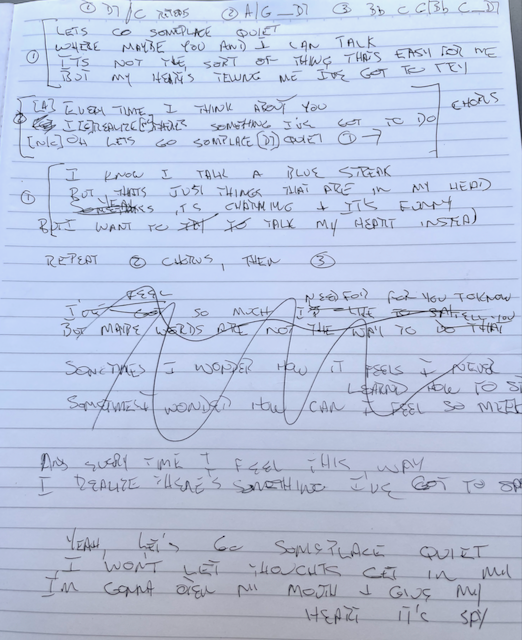 ① D7/C ② A/G _ D7 ③ Bb C G[Bb C_D7]
① LETS GO SOMEPLACE QUIET
WHERE MAYBE YOU AND I CAN TALK
IT'S NOT THE SORT OF THING THATS EASY FOR ME
BUT MY HEARTS TELLING ME I'VE GOT TO TRY
[A] EVERY TIME I THINK ABOUT YOU
② I REALIZE THERES SOMETHING I'VE GOT TO DO CHORUS
[N/C] OH LETS GO SOMPLACE [D7] QUIET ① →
① I KNOW I TALK A BLUE STREAK
BUT THATS JUST THINGS THAT ARE IN MY HEAD
YEAH, ITS CHARMING & ITS FUNNY,
BUT I WANT TO TRY TO TALK MY HEART INSTEAD
REPEAT ② CHORUS, THEN ③
FEEL NEED FOR FOR YOU TO KNOW
I'VE GOT SO MUCH I'D LIKE TO SAY
BUT MAYBE WORDS ARE NOT THE WAY TO DO THAT
SOMETIMES I WONDER HOW IT FEELS I NEVER
LEARND HOW TO
SOMETIMES I WONDER HOW CAN I FEEL SO MUCH
AND EVERY TIME I FEEL THIS WAY
I REALIZE THERE'S SOMETHING I'VE GOT TO
YEAH, LET'S GO SOMEPLACE QUIET
I WON'T LET THOUGHTS GET IN MY
I'M GONNA OPEN MY MOUTH & GIVE MY
HEART IT'S SAY